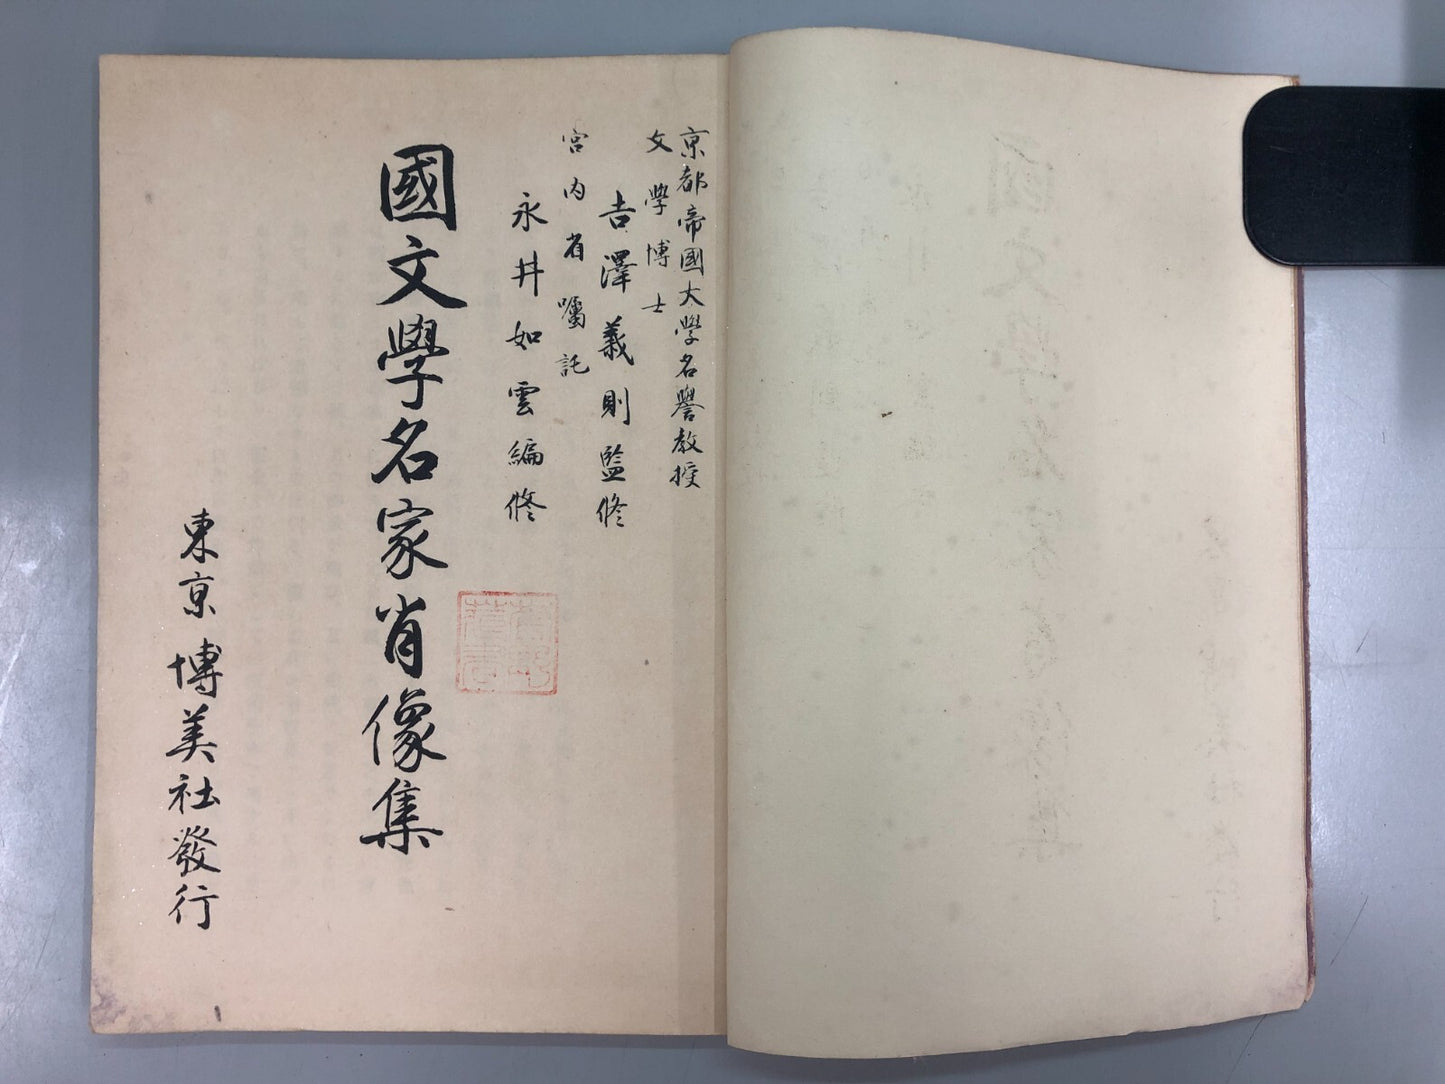 京都帝國大學名譽教授
文學博士
吉澤義則監修
宮内省嘱託
永井如雲編修
國文學名家肖像集
東京博美社發行